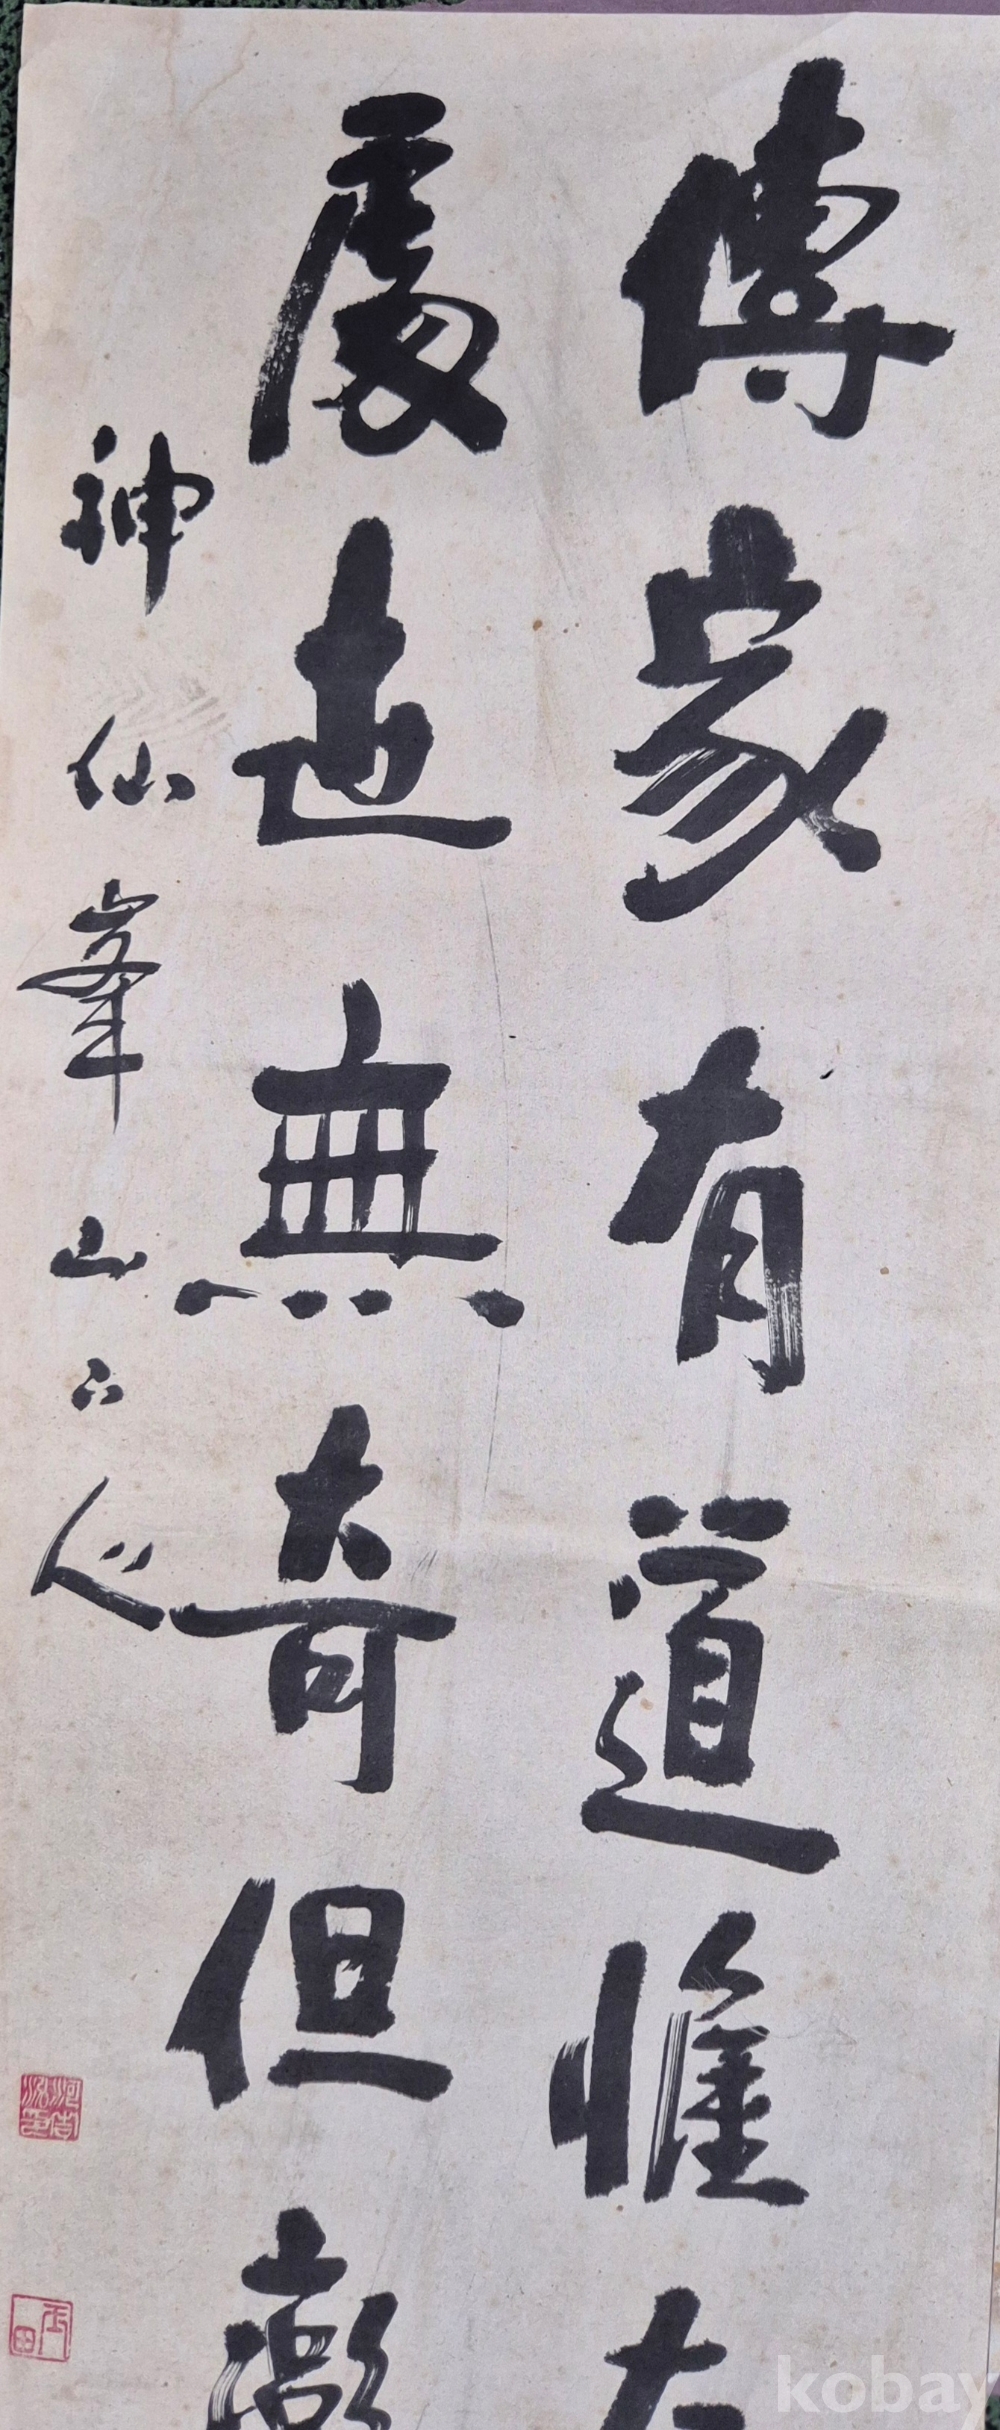 傳家有道惟
處世無奇但率
神仙峯山下人
kobay